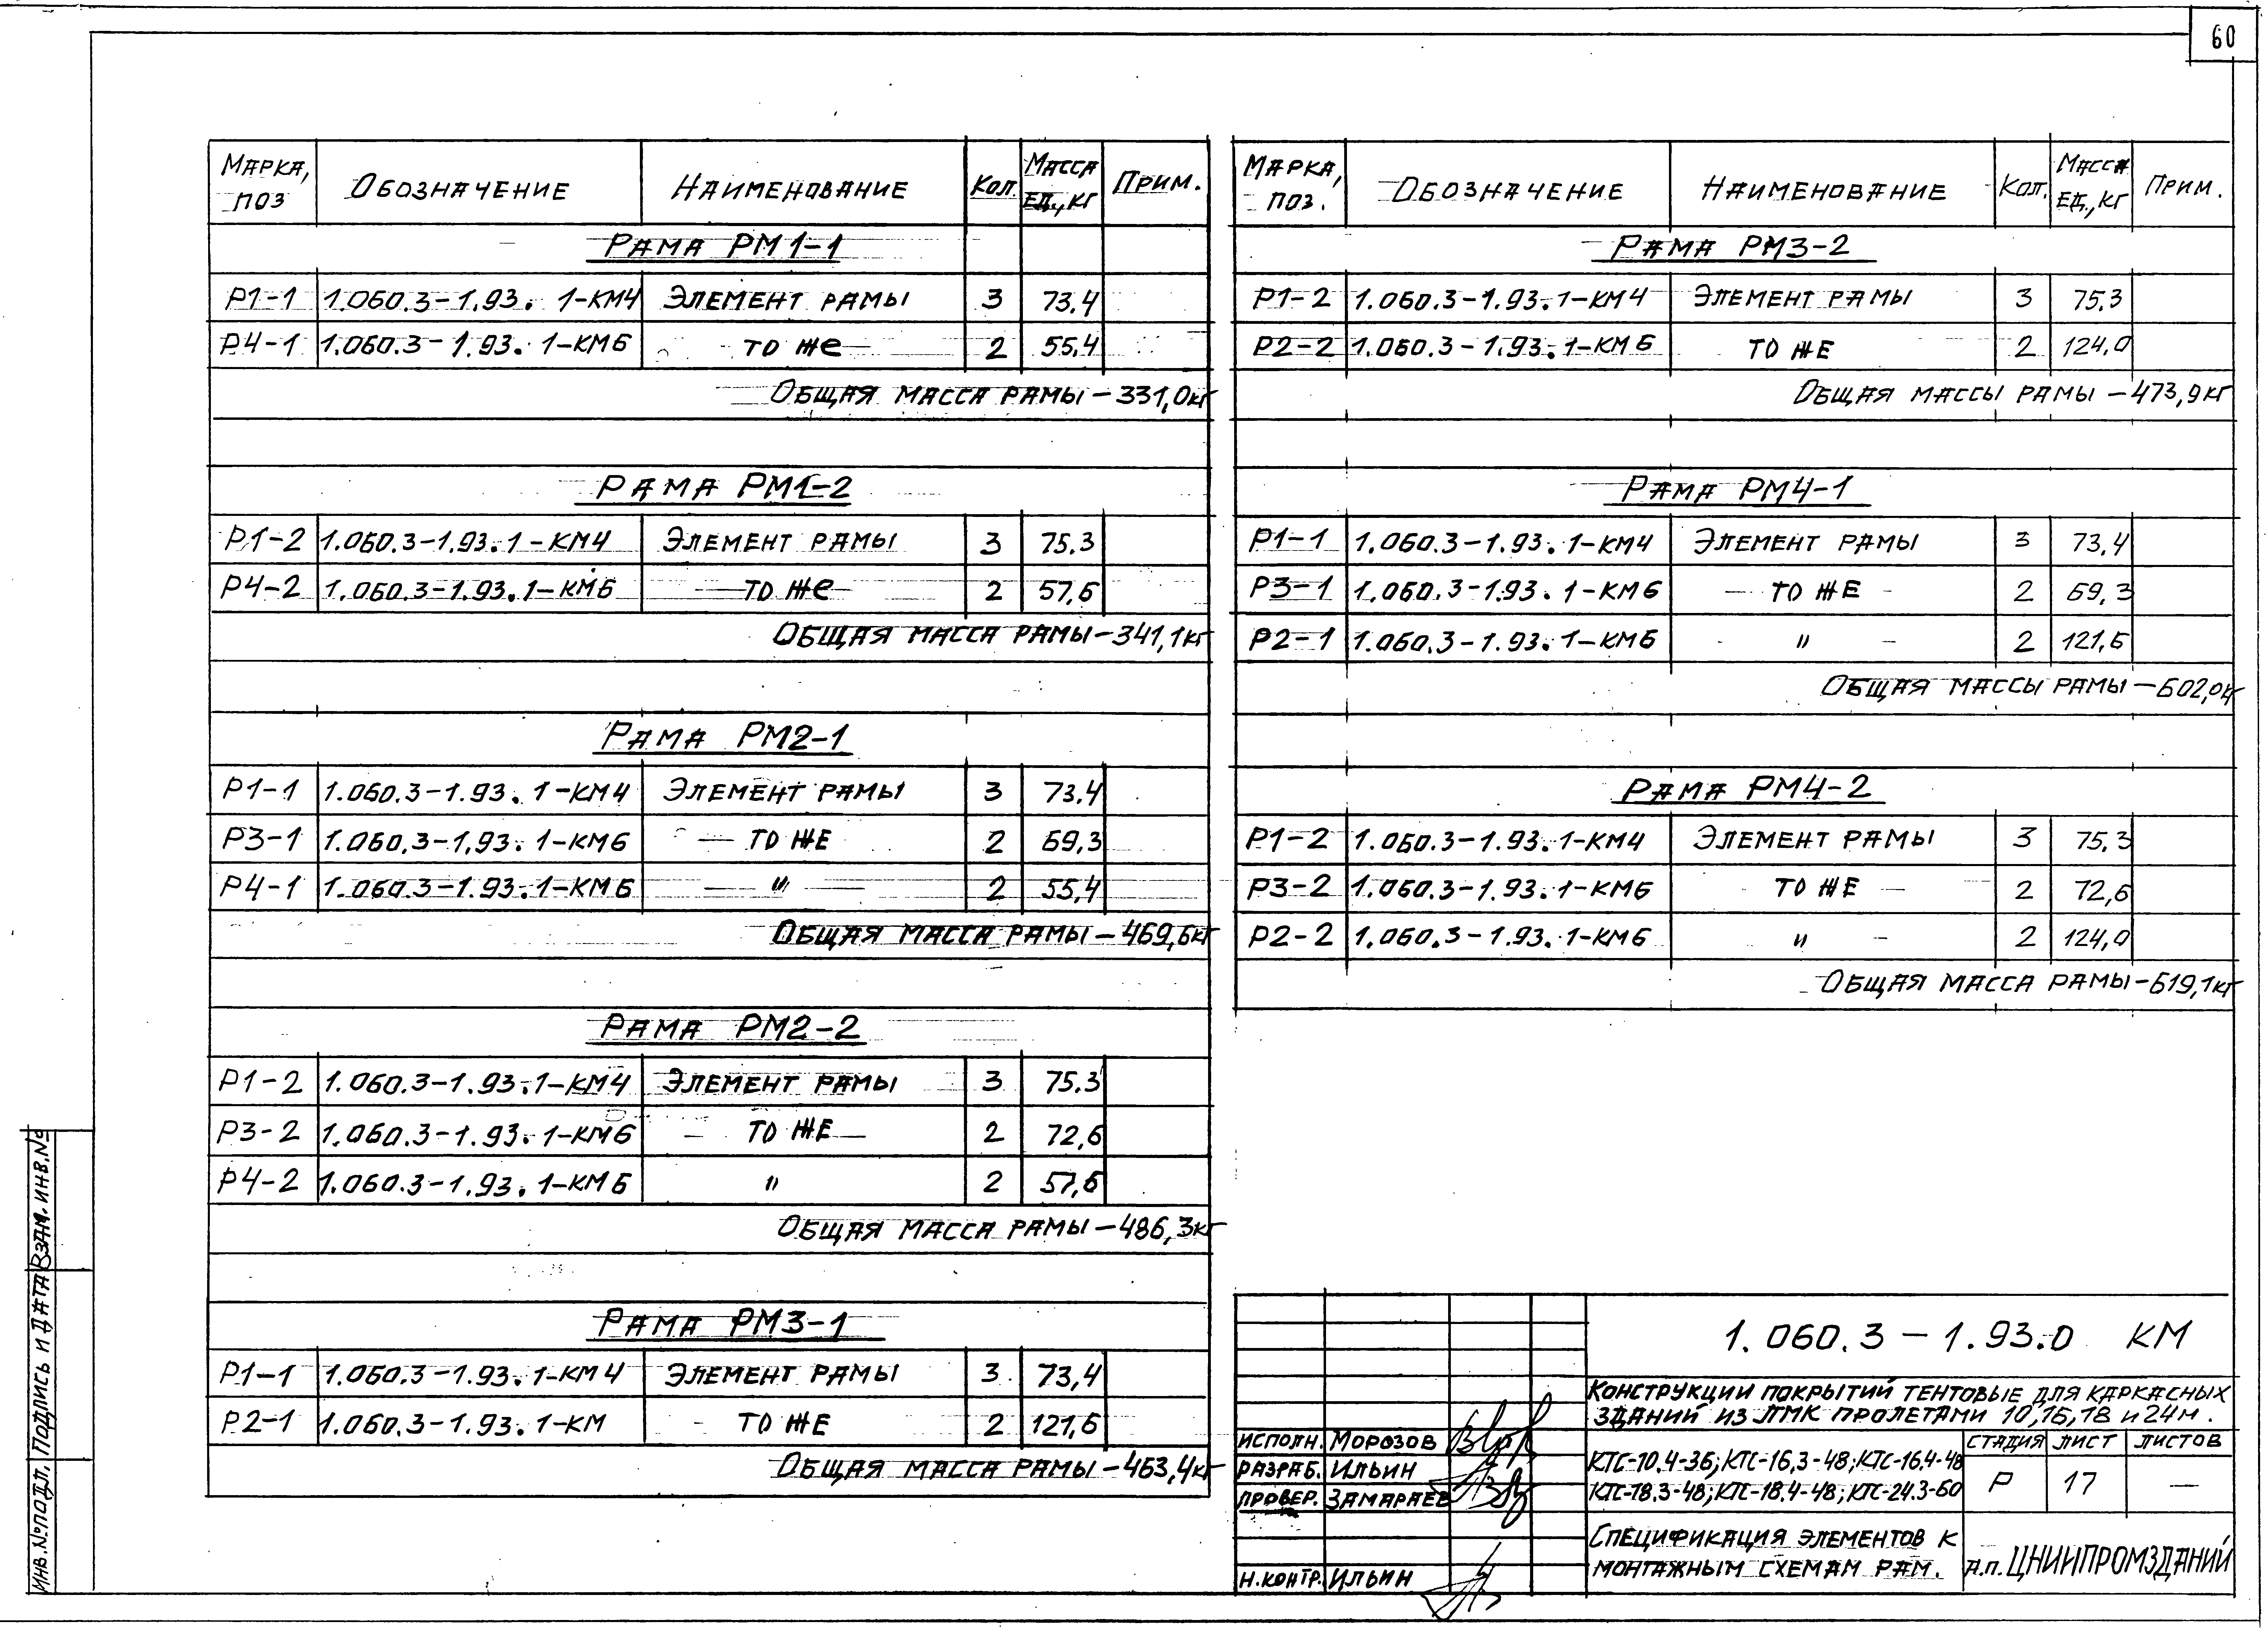 60
МАРКА, ПОЗ ОБОЗНАЧЕНИЕ НАИМЕНОВАНИЕ КОЛ. МАССА ЕД., КГ ПРИМ.
РАМА РМ1-1
Р1-1 1.060.3-1.93.1-КМ4 ЭЛЕМЕНТ РАМЫ 3 73,4
Р4-1 1.060.3-1.93.1-КМ6 ТО ЖЕ 2 55,4
ОБЩАЯ МАССА РАМЫ - 331,0кг
РАМА РМ1-2
Р1-2 1.060.3-1.93.1-КМ4 ЭЛЕМЕНТ РАМЫ 3 75.3
Р4-2 1.060.3-1.93.1-КМ6 ТО ЖЕ 2 57,6
ОБЩАЯ МАССА РАМЫ - 341,1кг
РАМА РМ2-1
Р1-1 1.060.3-1.93.1-КМ4 ЭЛЕМЕНТ РАМЫ 3 73.4
Р3-1 1.060.3-1.93.1-КМ6 ТО ЖЕ 2 69,3
Р4-1 1.060.3-1.93.1-КМ6 " 2 55,4
ОБЩАЯ МАССА РАМЫ - 469,6кг
РАМА РМ2-2
Р1-2 1.060.3-1.93.1-КМ4 ЭЛЕМЕНТ РАМЫ 3 75.3
Р3-2 1.060.3-1.93.1-КМ6 ТО ЖЕ 2 72,6
Р4-2 1.060.3-1.93.1-КМ6 " 2 57,6
ОБЩАЯ МАССА РАМЫ - 486,3кг
РАМА РМ3-1
Р1-1 1.060.3-1.93.1-КМ4 ЭЛЕМЕНТ РАМЫ 3 73,4
Р2-1 1.060.3-1.93.1-КМ ТО ЖЕ 2 121,6
ОБЩАЯ МАССА РАМЫ - 463,4кг
МАРКА, ПОЗ. ОБОЗНАЧЕНИЕ НАИМЕНОВАНИЕ КОЛ. МАССА ЕД., КГ ПРИМ.
РАМА РМ3-2
Р1-2 1.060.3-1.93.1-КМ4 ЭЛЕМЕНТ РАМЫ 3 75.3
Р2-2 1.060.3-1.93.1-КМ6 ТО ЖЕ 2 124,0
ОБЩАЯ МАССЫ РАМЫ - 473,9кг
РАМА РМ4-1
Р1-1 1.060.3-1.93.1-КМ4 ЭЛЕМЕНТ РАМЫ 3 73,4
Р3-1 1.060.3-1.93.1-КМ6 ТО ЖЕ 2 69,3
Р2-1 1.060.3-1.93.1-КМ6 " 2 121,6
ОБЩАЯ МАССЫ РАМЫ - 602,0кг
РАМА РМ4-2
Р1-2 1.060.3-1.93.1-КМ4 ЭЛЕМЕНТ РАМЫ 3 75,3
Р3-2 1.060.3-1.93.1-КМ6 ТО ЖЕ 2 72,6
Р2-2 1.060.3-1.93.1-КМ6 " 2 124,0
ОБЩАЯ МАССА РАМЫ - 619,1кг
1.060.3-1.93.0 КМ
КОНСТРУКЦИИ ПОКРЫТИЙ ТЕНТОВЫЕ ДЛЯ КАРКАСНЫХ
ЗДАНИЙ ИЗ ЛМК ПРОЛЕТАМИ 10,16,18 и 24м.
ИСПОЛН. МОРОЗОВ
РАЗРАБ. ИЛЬИН
ПРОВЕР. ЗАМАРАЕВ
Н.КОНТР. ИЛЬИН
КТС-10.4-36; КТС-16,3-48; КТС-16.4-48
КТС-18.3-48; КТС-18.4-48; КТС-24.3-60
СТАДИЯ ЛИСТ ЛИСТОВ
Р 17 —
СПЕЦИФИКАЦИЯ ЭЛЕМЕНТОВ К
МОНТАЖНЫМ СХЕМАМ РАМ.
А.П. ЦНИИПРОМЗДАНИЙ
ИНВ.№ПОДЛ. ПОДПИСЬ И ДАТА ВЗАМ.ИНВ.№